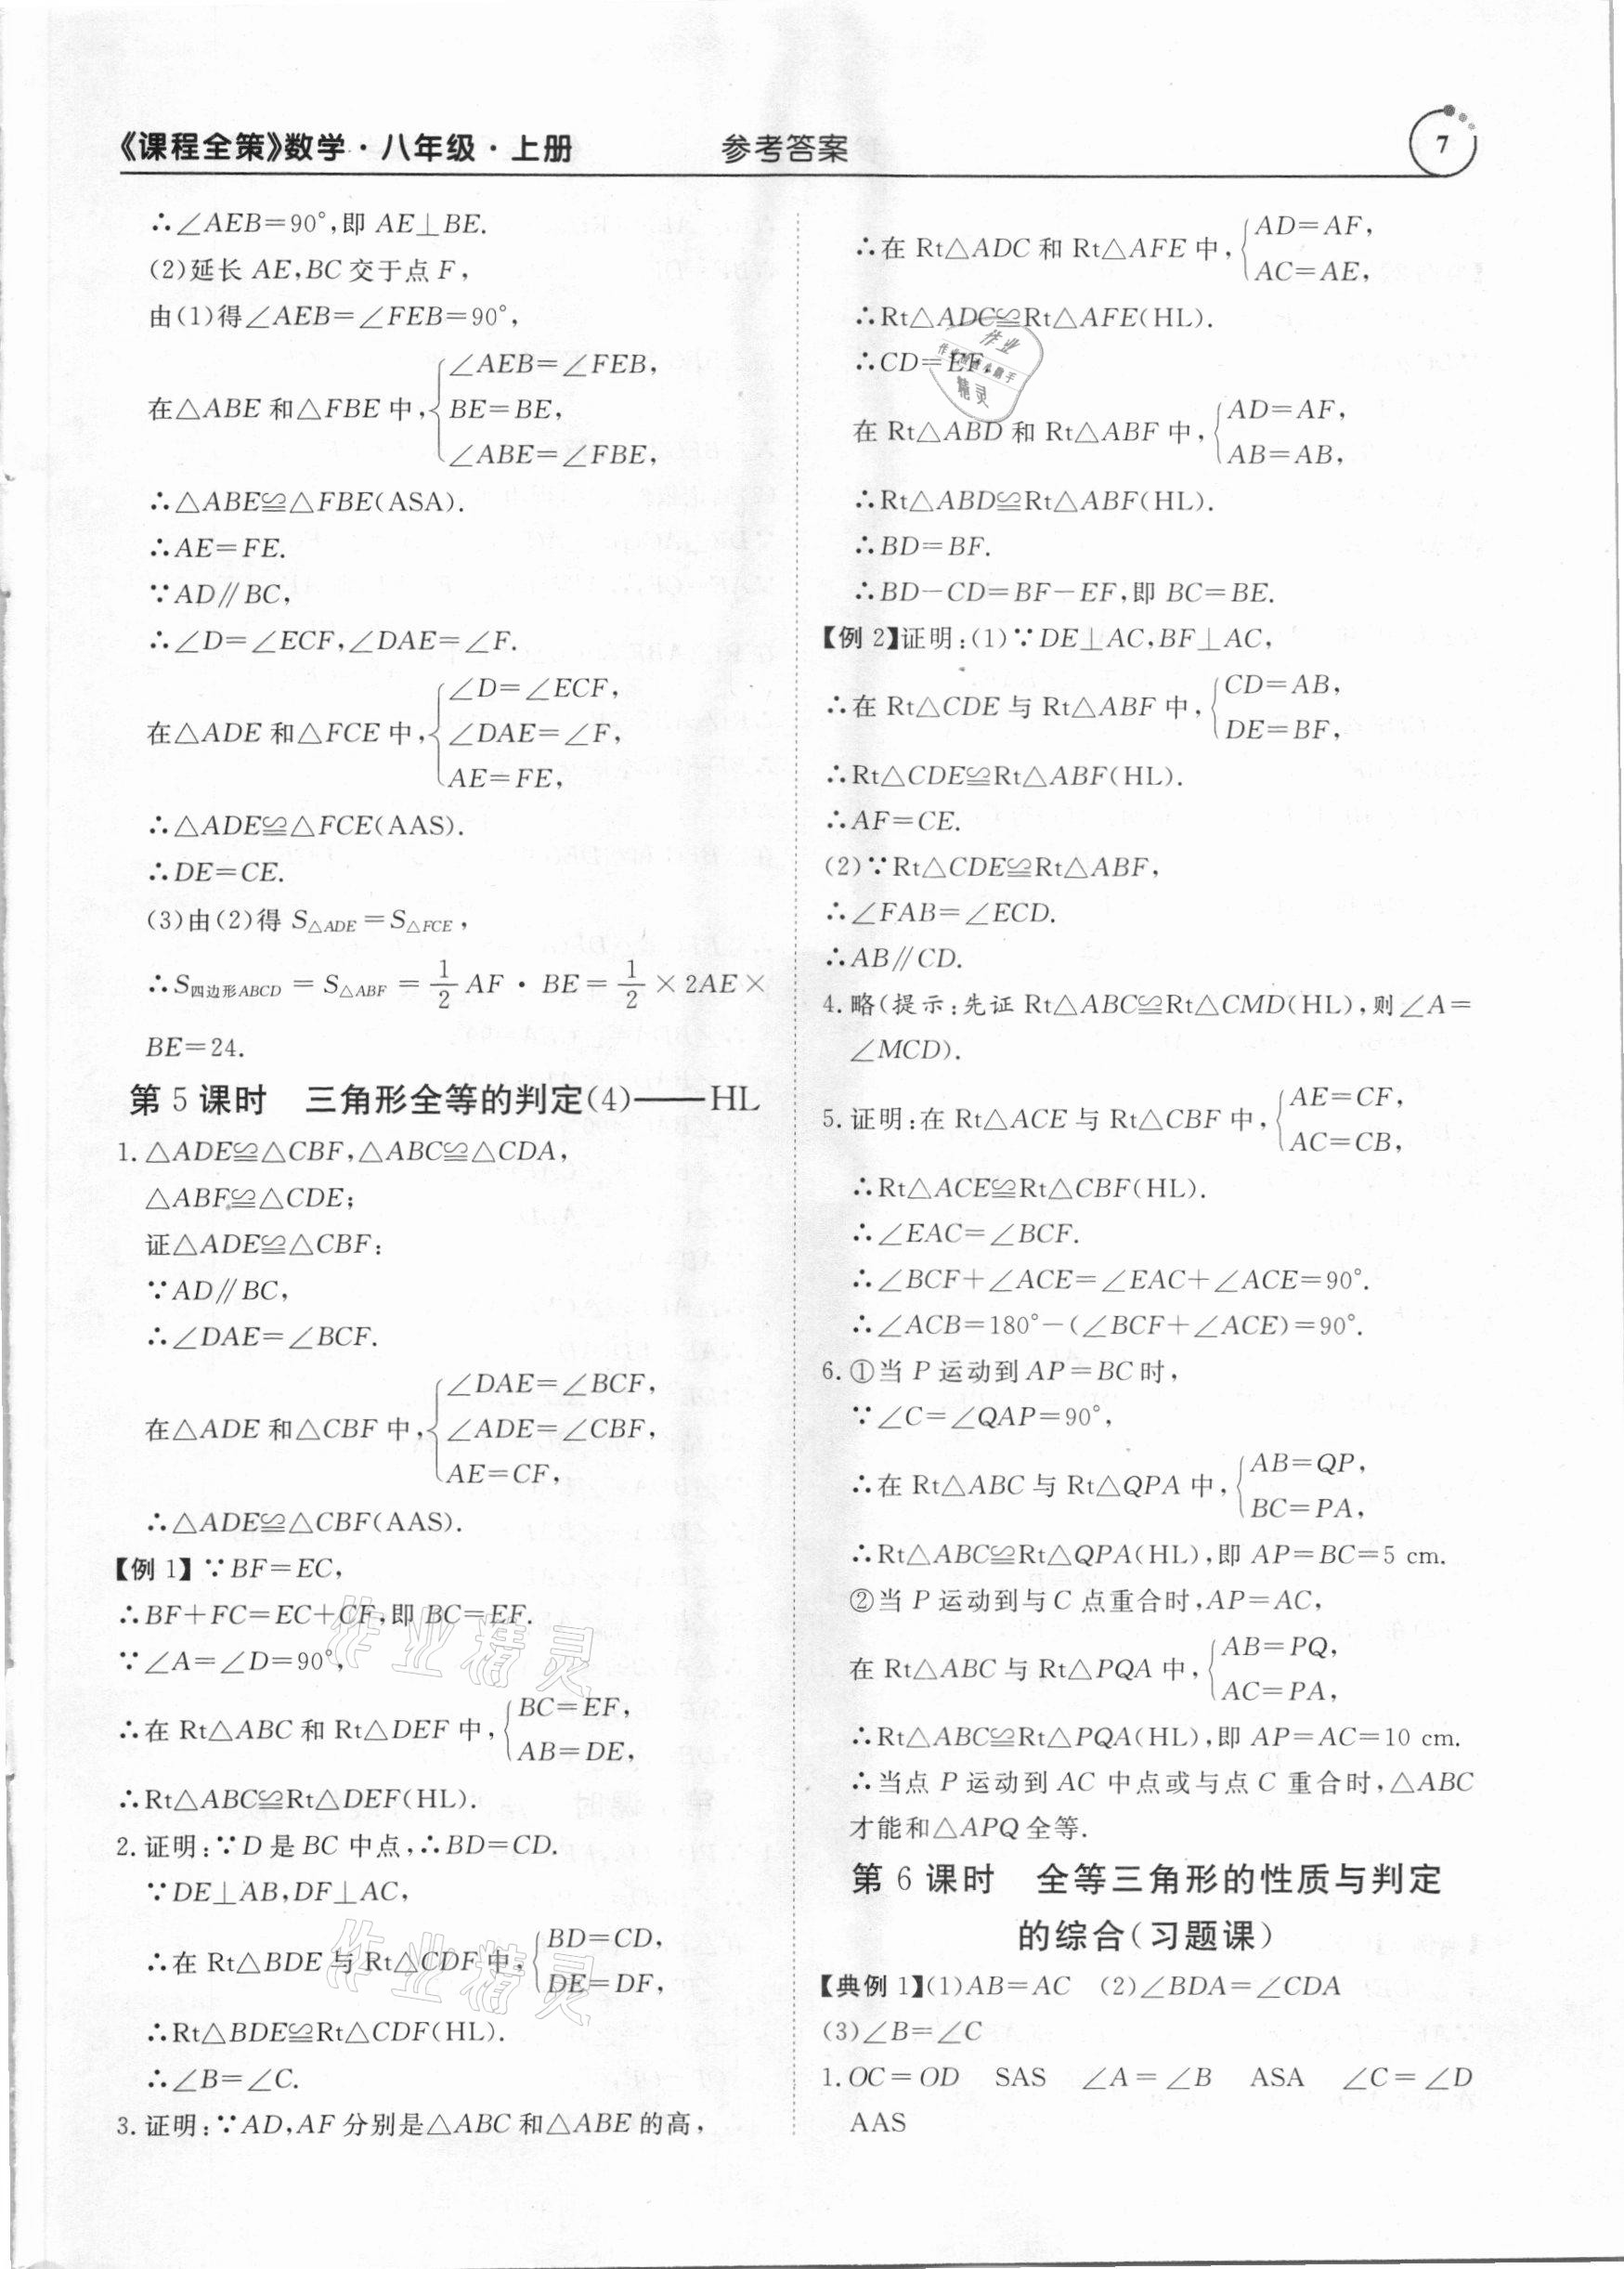 《课程全策》数学·八年级·上册
参考答案
7
∴∠AEB=90°,即 AE⊥BE.
(2)延长 AE,BC 交于点 F,
由(1)得∠AEB=∠FEB=90°,
在△ABE 和△FBE 中,{∠AEB=∠FEB,
BE=BE,
∠ABE=∠FBE,
∴△ABE≌△FBE(ASA).
∴AE=FE.
∵AD∥BC,
∴∠D=∠ECF,∠DAE=∠F.
在△ADE 和△FCE 中,{∠D=∠ECF,
∠DAE=∠F,
AE=FE,
∴△ADE≌△FCE(AAS).
∴DE=CE.
(3)由(2)得 S△ADE=S△FCE,
∴S四边形ABCD=S△ABF=1/2 AF·BE=1/2×2AE×
BE=24.
第 5 课时 三角形全等的判定(4)——HL
1.△ADE≌△CBF,△ABC≌△CDA,
△ABF≌△CDE;
证△ADE≌△CBF:
∵AD∥BC,
∴∠DAE=∠BCF.
在△ADE 和△CBF 中,{∠DAE=∠BCF,
∠ADE=∠CBF,
AE=CF,
∴△ADE≌△CBF(AAS).
【例 1】∵BF=EC,
∴BF+FC=EC+CF,即 BC=EF.
∵∠A=∠D=90°,
∴在 Rt△ABC 和 Rt△DEF 中,{BC=EF,
AB=DE,
∴Rt△ABC≌Rt△DEF(HL).
2.证明:∵D 是 BC 中点,∴BD=CD.
∵DE⊥AB,DF⊥AC,
∴在 Rt△BDE 与 Rt△CDF 中,{BD=CD,
DE=DF,
∴Rt△BDE≌Rt△CDF(HL).
∴∠B=∠C.
3.证明:∵AD,AF 分别是△ABC 和△ABE 的高,
∴在 Rt△ADC 和 Rt△AFE 中,{AD=AF,
AC=AE,
∴Rt△ADC≌Rt△AFE(HL).
∴CD=EF.
在 Rt△ABD 和 Rt△ABF 中,{AD=AF,
AB=AB,
∴Rt△ABD≌Rt△ABF(HL).
∴BD=BF.
∴BD-CD=BF-EF,即 BC=BE.
【例 2】证明:(1)∵DE⊥AC,BF⊥AC,
∴在 Rt△CDE 与 Rt△ABF 中,{CD=AB,
DE=BF,
∴Rt△CDE≌Rt△ABF(HL).
∴AF=CE.
(2)∵Rt△CDE≌Rt△ABF,
∴∠FAB=∠ECD.
∴AB∥CD.
4.略(提示:先证 Rt△ABC≌Rt△CMD(HL),则∠A=
∠MCD).
5.证明:在 Rt△ACE 与 Rt△CBF 中,{AE=CF,
AC=CB,
∴Rt△ACE≌Rt△CBF(HL).
∴∠EAC=∠BCF.
∴∠BCF+∠ACE=∠EAC+∠ACE=90°.
∴∠ACB=180°-(∠BCF+∠ACE)=90°.
6.①当 P 运动到 AP=BC 时,
∵∠C=∠QAP=90°,
∴在 Rt△ABC 与 Rt△QPA 中,{AB=QP,
BC=PA,
∴Rt△ABC≌Rt△QPA(HL),即 AP=BC=5 cm.
②当 P 运动到与 C 点重合时,AP=AC,
在 Rt△ABC 与 Rt△PQA 中,{AB=PQ,
AC=PA,
∴Rt△ABC≌Rt△PQA(HL),即 AP=AC=10 cm.
∴当点 P 运动到 AC 中点或与点 C 重合时,△ABC
才能和△APQ 全等.
第 6 课时 全等三角形的性质与判定
的综合(习题课)
【典例 1】(1)AB=AC (2)∠BDA=∠CDA
(3)∠B=∠C
1.OC=OD SAS ∠A=∠B ASA ∠C=∠D
AAS
作业精灵
作业精灵
作业
精灵